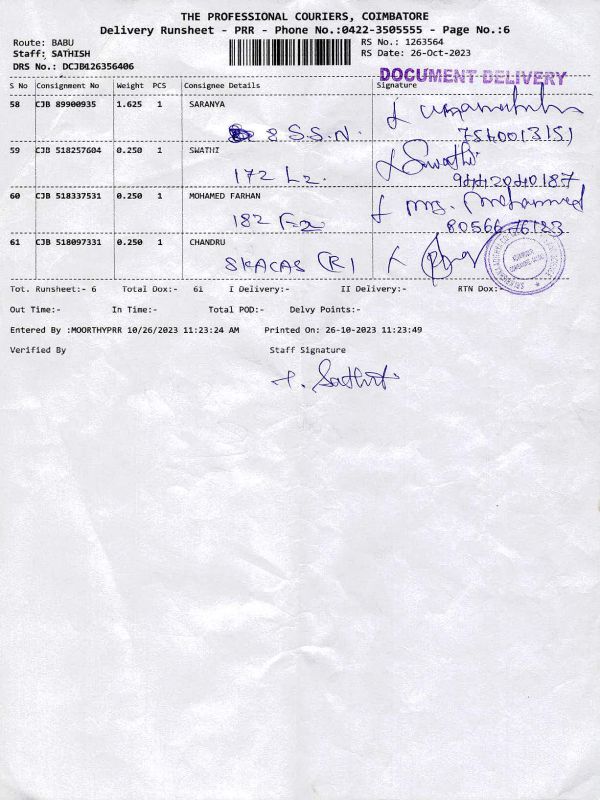 THE PROFESSIONAL COURIERS, COIMBATORE
Delivery Runsheet - PRR - Phone No.:0422-3505555 - Page No.:6
Route: BABU RS No.: 1263564
Staff: SATHISH RS Date: 26-Oct-2023
DRS No.: DCJB126356406
DOCUMENT DELIVERY
S No Consignment No Weight PCS Consignee Details Signature
58 CJB 89900935 1.625 1 SARANYA
8 S.S.N.
59 CJB 518257604 0.250 1 SWATHI Swathi
172 L2. 9442040187
60 CJB 518337531 0.250 1 MOHAMED FARHAN Mohammed
182 F2 8056676123
61 CJB 518097331 0.250 1 CHANDRU
SKACAS (R)
Tot. Runsheet:- 6 Total Dox:- 61 I Delivery:- II Delivery:- RTN Dox:-
Out Time:- In Time:- Total POD:- Delvy Points:-
Entered By :MOORTHYPRR 10/26/2023 11:23:24 AM Printed On: 26-10-2023 11:23:49
Verified By Staff Signature
Sathish